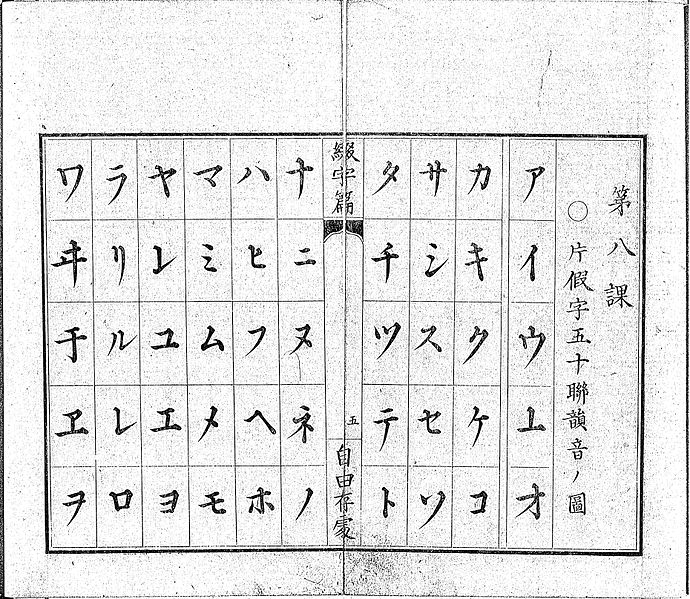 第八課
〇片假字五十聯韻音ノ圖
アイウ𛀀オ
カキクケコ
サシスセソ
タチツテト
綴字篇
五
自由存處
ナニヌネノ
ハヒフヘホ
マミムメモ
ヤ𛄠ユエヨ
ラリルレロ
ワヰ𛄢ヱヲ